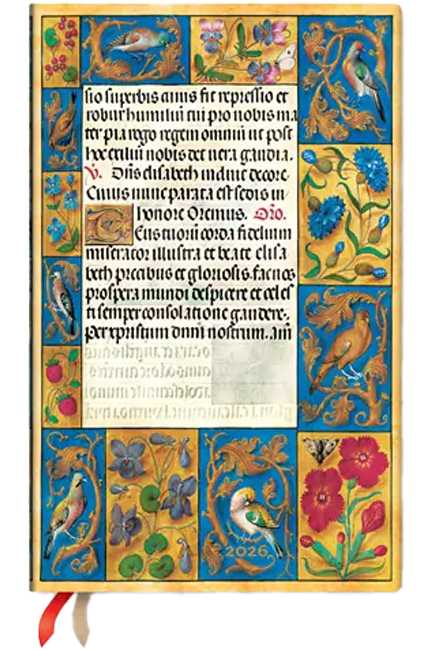 sio superbis cuius fit repressio et
robur humiliū tu pro nobis ma
ter pia rogo regem omniū ut post
hoc exiliū nobis det vera gaudia.
V. Dn̄s elisabeth induit decore.
Cuius nunc parata est sedis in
honore Oremus. Oŕo.
Tuorū corda fidelium
miserator illustra et beate elisa
beth precibus et gloriosis fac nos
prospera mundi despicere et celes
ti semper consolatione gaudere.
per xp̄istum dnm̄ nostrum. am̄
2026